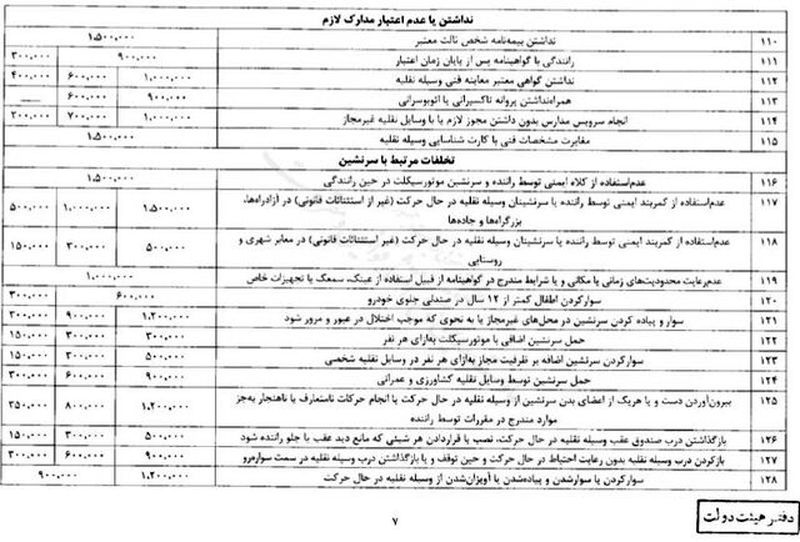 نداشتن یا عدم اعتبار مدارک لازم
۱۱۰ نداشتن بیمه‌نامه شخص ثالث معتبر ۱،۵۰۰،۰۰۰
۱۱۱ رانندگی با گواهینامه پس از پایان زمان اعتبار ۹۰۰،۰۰۰ ۳۰۰،۰۰۰
۱۱۲ نداشتن گواهی معتبر معاینه فنی وسیله نقلیه ۱،۰۰۰،۰۰۰ ۶۰۰،۰۰۰ ۴۰۰،۰۰۰
۱۱۳ همراه‌نداشتن پروانه تاکسیرانی یا اتوبوسرانی ۹۰۰،۰۰۰ ۶۰۰،۰۰۰ ــــ
۱۱۴ انجام سرویس مدارس بدون داشتن مجوز لازم یا با وسایل نقلیه غیرمجاز ۱،۰۰۰،۰۰۰ ۷۰۰،۰۰۰ ۲۰۰،۰۰۰
۱۱۵ مغایرت مشخصات فنی با کارت شناسایی وسیله نقلیه ۱،۵۰۰،۰۰۰
تخلفات مرتبط با سرنشین
۱۱۶ عدم‌استفاده از کلاه ایمنی توسط راننده و سرنشین موتورسیکلت در حین رانندگی ۱،۵۰۰،۰۰۰
۱۱۷ عدم‌استفاده از کمربند ایمنی توسط راننده یا سرنشینان وسیله نقلیه در حال حرکت (غیر از استثنائات قانونی) در آزادراه‌ها، ۱،۵۰۰،۰۰۰ ۱،۰۰۰،۰۰۰ ۵۰۰،۰۰۰
بزرگراه‌ها و جاده‌ها
۱۱۸ عدم‌استفاده از کمربند ایمنی توسط راننده یا سرنشینان وسیله نقلیه در حال حرکت (غیر استثنائات قانونی) در معابر شهری و ۵۰۰،۰۰۰ ۳۰۰،۰۰۰ ۱۵۰،۰۰۰
روستایی
۱۱۹ عدم‌رعایت محدودیت‌های زمانی یا مکانی و یا شرایط مندرج در گواهینامه از قبیل استفاده از عینک، سمعک یا تجهیزات خاص ۱،۰۰۰،۰۰۰
۱۲۰ سوارکردن اطفال کمتر از ۱۲ سال در صندلی جلوی خودرو ۶۰۰،۰۰۰ ۳۰۰،۰۰۰
۱۲۱ سوار و پیاده کردن سرنشین در محل‌های غیرمجاز یا به نحوی که موجب اختلال در عبور و مرور شود ۱،۲۰۰،۰۰۰ ۹۰۰،۰۰۰ ۳۰۰،۰۰۰
۱۲۲ حمل سرنشین اضافی با موتورسیکلت به‌ازای هر نفر ۳۰۰،۰۰۰ ۳۰۰،۰۰۰ ۱۵۰،۰۰۰
۱۲۳ سوارکردن سرنشین اضافه بر ظرفیت مجاز به‌ازای هر نفر در وسایل نقلیه شخصی ۵۰۰،۰۰۰ ۳۰۰،۰۰۰ ۱۵۰،۰۰۰
۱۲۴ حمل سرنشین توسط وسایل نقلیه کشاورزی و عمرانی ۹۰۰،۰۰۰ ۶۰۰،۰۰۰ ۳۰۰،۰۰۰
۱۲۵ بیرون‌آوردن دست و یا هریک از اعضای بدن سرنشین از وسیله نقلیه در حال حرکت یا انجام حرکات نامتعارف یا ناهنجار به‌جز ۱،۲۰۰،۰۰۰ ۸۰۰،۰۰۰ ۳۵۰،۰۰۰
موارد مندرج در مقررات توسط راننده
۱۲۶ بازگذاشتن درب صندوق عقب وسیله نقلیه در حال حرکت، نصب یا قراردادن هر شیئی که مانع دید عقب یا جلو راننده شود ۵۰۰،۰۰۰ ۳۰۰،۰۰۰ ۱۵۰،۰۰۰
۱۲۷ بازکردن درب وسیله نقلیه بدون رعایت احتیاط در حال حرکت و حین توقف و یا بازگذاشتن درب وسیله نقلیه در سمت سواره‌رو ۹۰۰،۰۰۰ ۶۰۰،۰۰۰ ۳۰۰،۰۰۰
۱۲۸ سوارکردن یا سوارشدن و پیاده‌شدن یا آویزان‌شدن از وسیله نقلیه در حال حرکت ۱،۲۰۰،۰۰۰ ۹۰۰،۰۰۰
۷
دفتر هیئت دولت